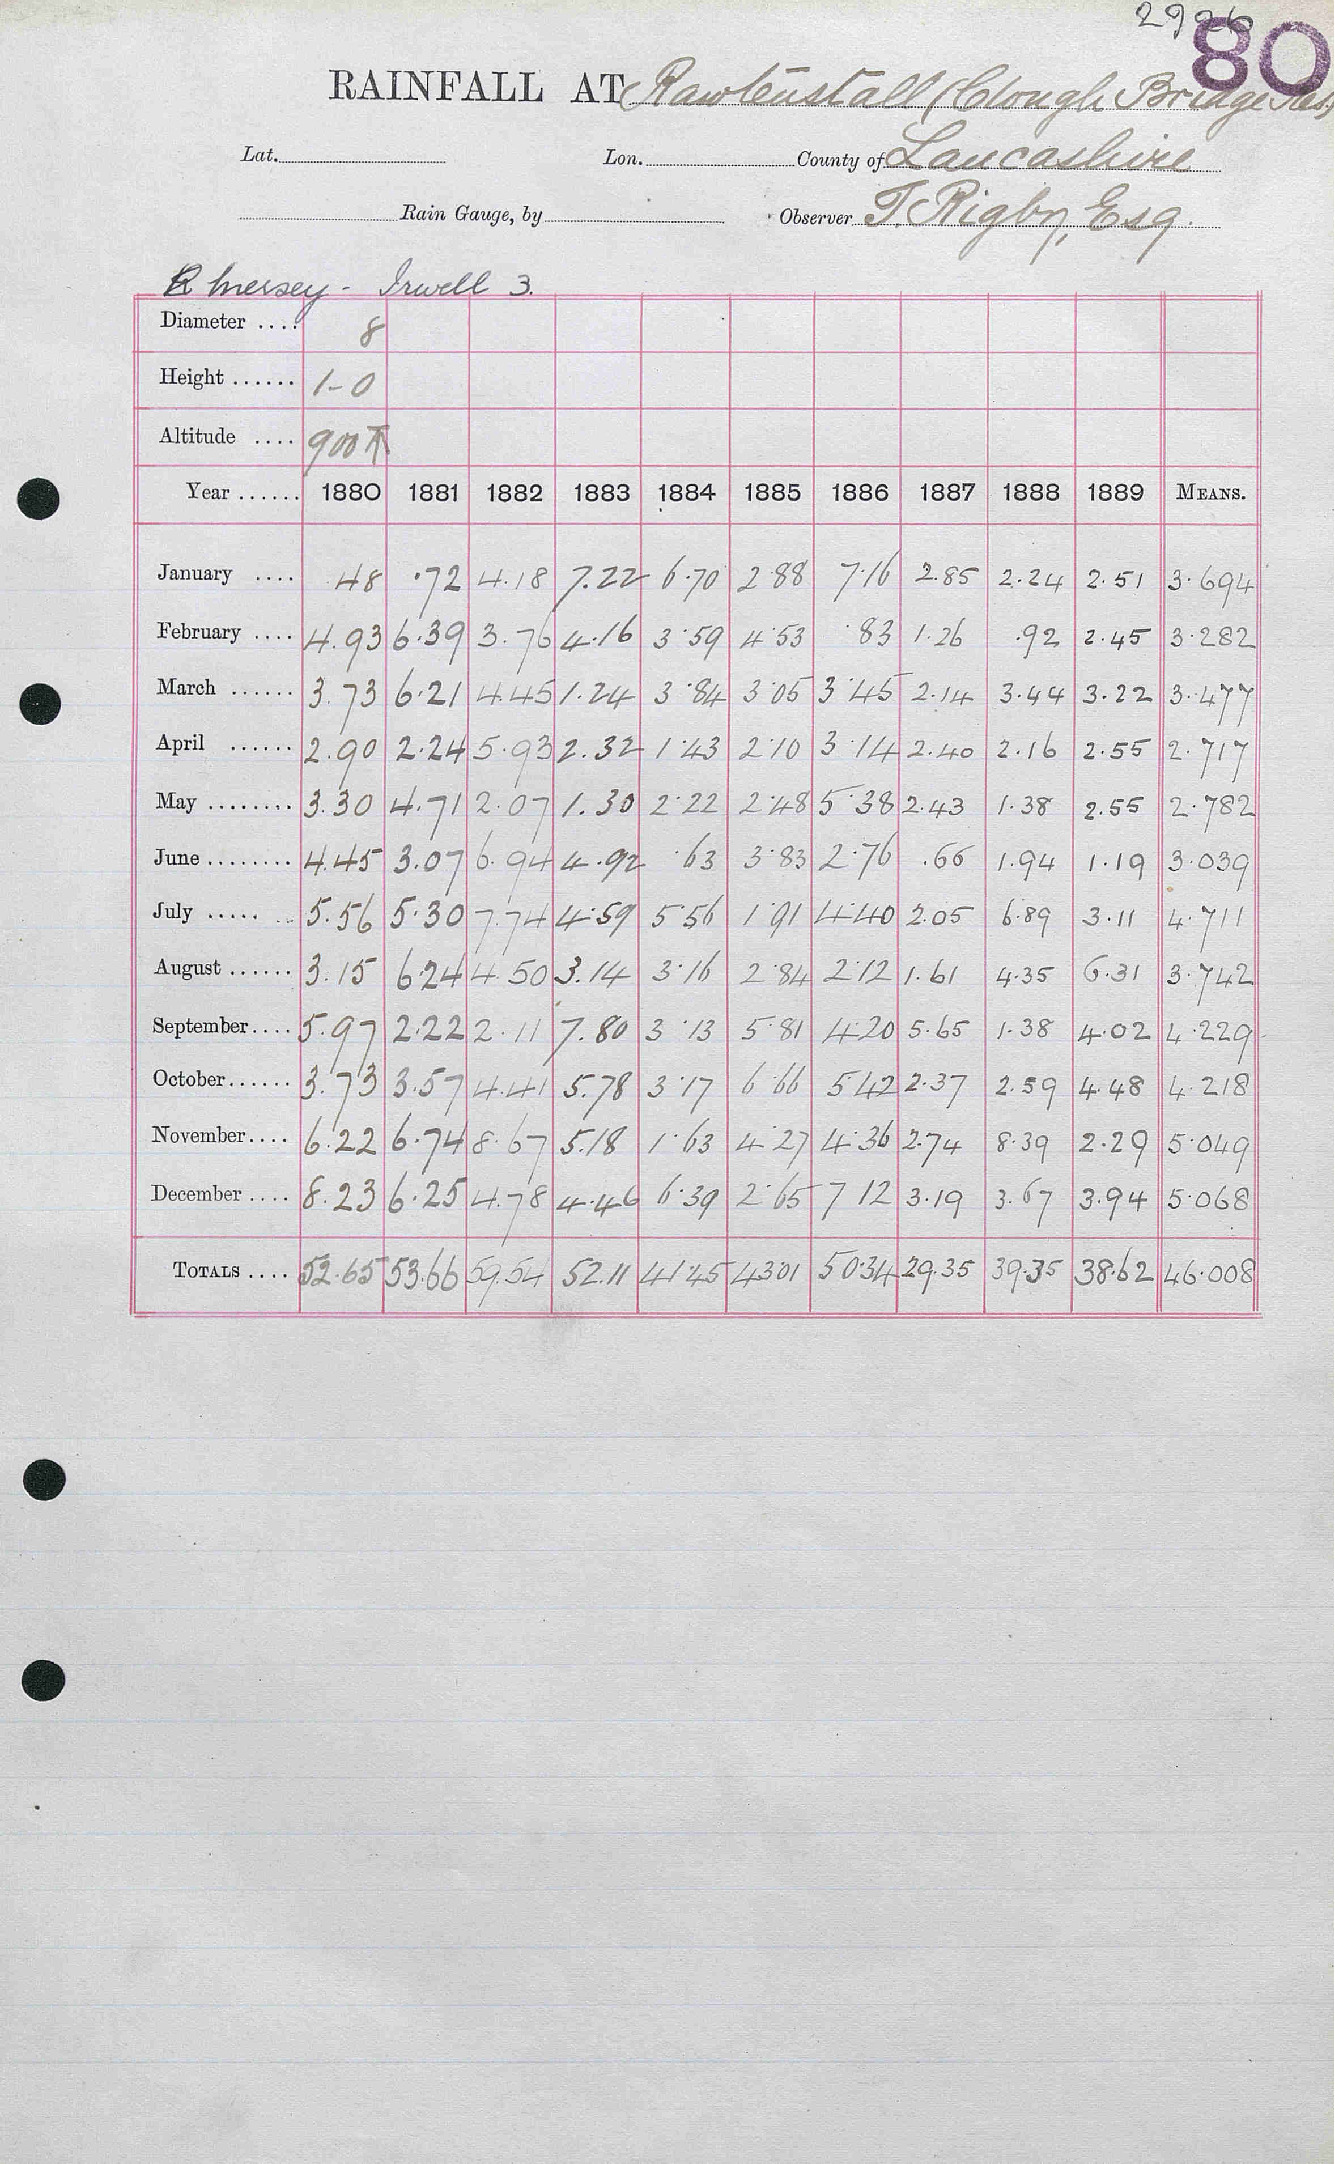 2926
80
RAINFALL AT Rawtenstall (Clough Bridge Res.)
Lat. Lon. County of Lancashire
Rain Gauge, by Observer T. Rigby, Esq.
R Mersey - Irwell 3.
Diameter .... 8
Height ...... 1-0
Altitude .... 900 T
Year ...... 1880 1881 1882 1883 1884 1885 1886 1887 1888 1889 MEANS.
January .... .48 .72 4.18 7.22 6.70 2.88 7.16 2.85 2.24 2.51 3.694
February .... 4.93 6.39 3.76 4.16 3.59 4.53 .83 1.26 .92 2.45 3.282
March ...... 3.73 6.21 4.45 1.24 3.84 3.05 3.45 2.14 3.44 3.22 3.477
April ...... 2.90 2.24 5.93 2.32 1.43 2.10 3.14 2.40 2.16 2.55 2.717
May ........ 3.30 4.71 2.07 1.30 2.22 2.48 5.38 2.43 1.38 2.55 2.782
June ........ 4.45 3.07 6.94 4.92 .63 3.83 2.76 .66 1.94 1.19 3.039
July ..... .. 5.56 5.30 7.74 4.59 5.56 1.91 4.40 2.05 6.89 3.11 4.711
August ...... 3.15 6.24 4.50 3.14 3.16 2.84 2.12 1.61 4.35 6.31 3.742
September.... 5.97 2.22 2.11 7.80 3.13 5.81 4.20 5.65 1.38 4.02 4.229
October...... 3.73 3.57 4.41 5.78 3.17 6.66 5.42 2.37 2.59 4.48 4.218
November.... 6.22 6.74 8.67 5.18 1.63 4.27 4.36 2.74 8.39 2.29 5.049
December .... 8.23 6.25 4.78 4.46 6.39 2.65 7.12 3.19 3.67 3.94 5.068
TOTALS .... 52.65 53.66 59.54 52.11 41.45 43.01 50.34 29.35 39.35 38.62 46.008